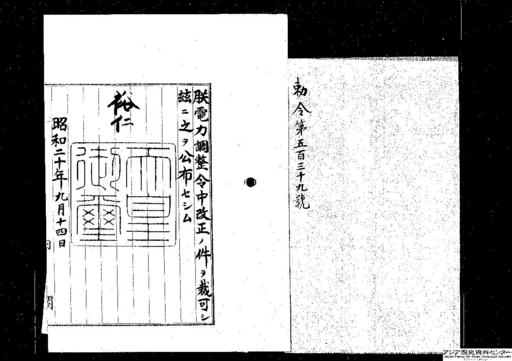 勅令第五百三十九號
朕電力調整令中改正ノ件ヲ裁可シ
玆ニ之ヲ公布セシム
裕仁
天皇御璽
昭和二十年九月十四日
内閣
アジア歴史資料センター